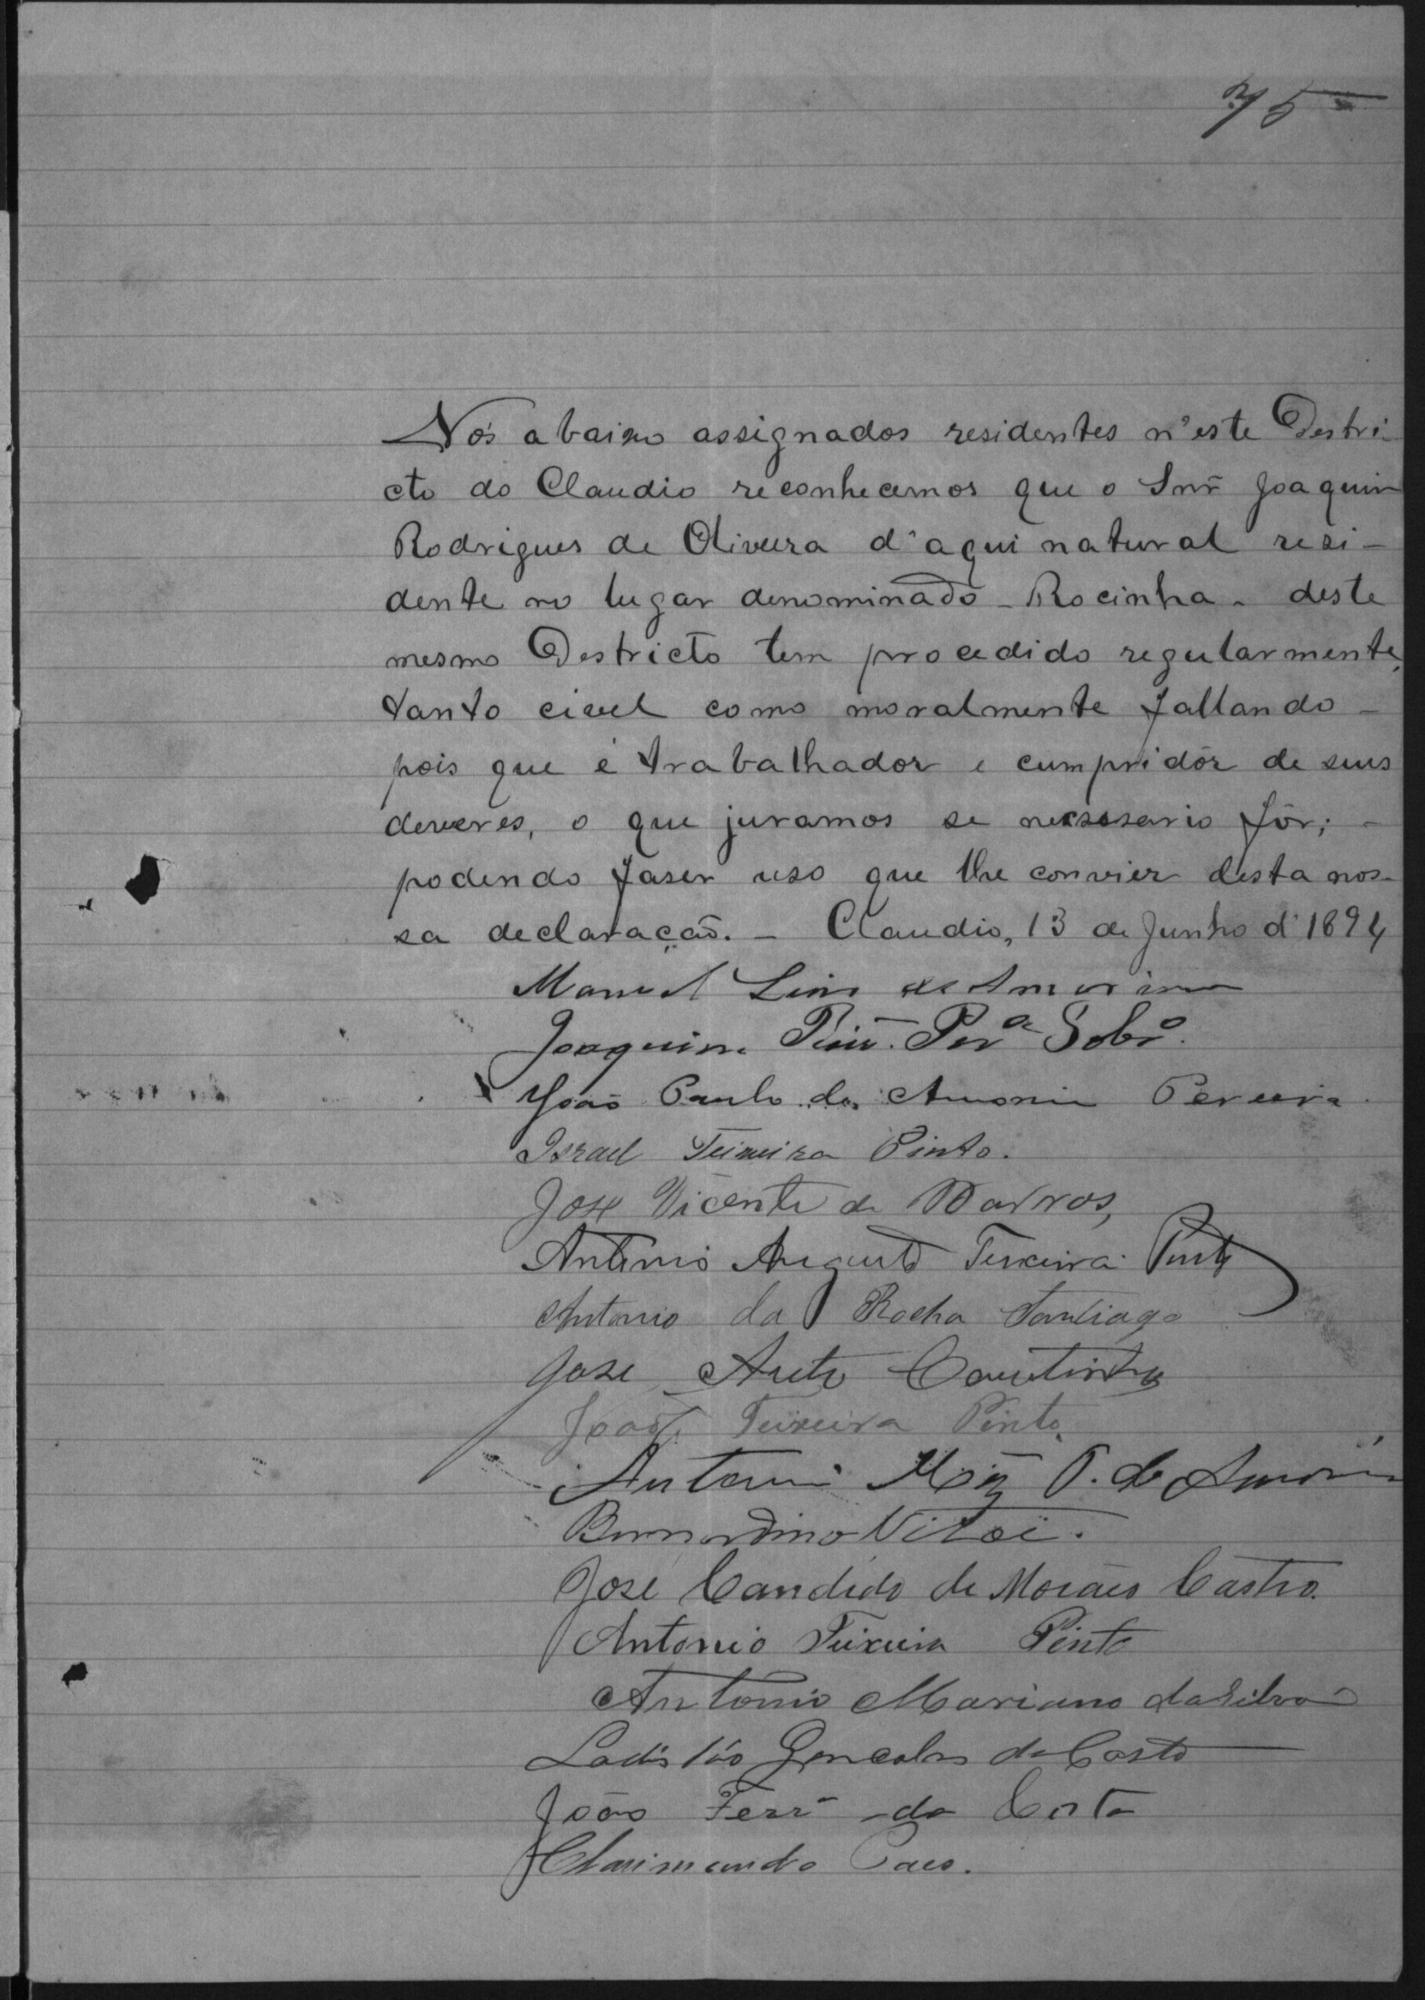 75
Nós abaixo assignados residentes n'este Destri-
cto do Claudio reconhecemos que o Snr Joaquim
Rodrigues de Oliveira d'aqui natural resi-
dente no lugar denominado - Rocinha - deste
mesmo Destricto tem procedido regularmente,
tanto civel como moralmente fallando -
pois que é trabalhador e cumpridôr de seus
deveres, o que juramos se necessario fôr; -
podendo faser uso que lhe convier desta nos-
sa declaração. - Claudio, 13 de Junho d'1894
Manoel Lins de Amorim
Joaquim Per.ª Sobr.º
João Paulo de Amorim Pereira
Israel Teixeira Pinto.
José Vicente de Barros,
Antonio Augusto Teixeira Pinto
Antonio da Rocha Santiago
José Coutinho
João Teixeira Pinto
Antonio P. de Amorim
Bernardino
José Candido de Moraes Castro.
Antonio Teixeira Pinto
Antonio Mariano da Silva
Ladisláo Gonçalves da Costa
João Ferr.ª da Costa
Clarimundo Paes.